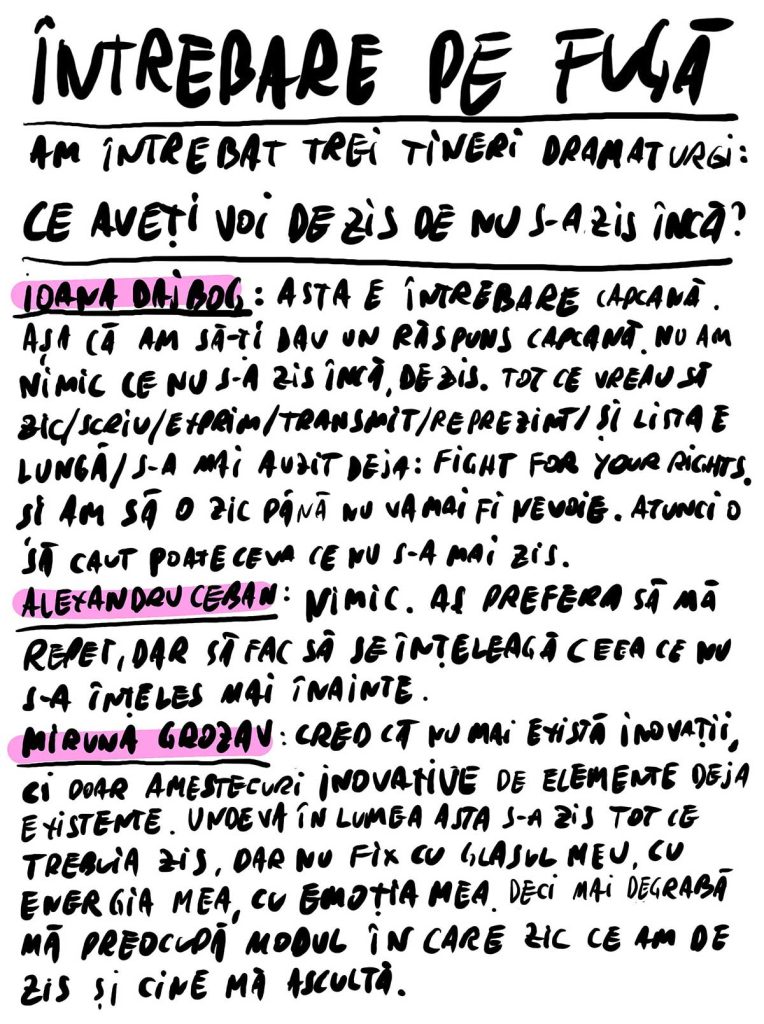 ÎNTREBARE DE FUGĂ
AM ÎNTREBAT TREI TINERI DRAMATURGI:
CE AVEȚI VOI DE ZIS DE NU S-A ZIS ÎNCĂ?
IOANA DAIBOG: ASTA E ÎNTREBARE CAPCANĂ.
AȘA CĂ AM SĂ-ȚI DAU UN RĂSPUNS CAPCANĂ. NU AM
NIMIC CE NU S-A ZIS ÎNCĂ, DE ZIS. TOT CE VREAU SĂ
ZIC/SCRIU/EXPRIM/TRANSMIT/REPREZINT/ȘI LISTA E
LUNGĂ/S-A MAI AUZIT DEJA: FIGHT FOR YOUR RIGHTS.
ȘI AM SĂ O ZIC PÂNĂ NU VA MAI FI NEVOIE. ATUNCI O
SĂ CAUT POATE CEVA CE NU S-A MAI ZIS.
ALEXANDRU CEBAN: NIMIC. AȘ PREFERA SĂ MĂ
REPET, DAR SĂ FAC SĂ SE ÎNȚELEAGĂ CEEA CE NU
S-A ÎNȚELES MAI ÎNAINTE.
MIRUNA GROZAV: CRED CĂ NU MAI EXISTĂ INOVAȚII,
CI DOAR AMESTECURI INOVATIVE DE ELEMENTE DEJA
EXISTENTE. UNDEVA ÎN LUMEA ASTA S-A ZIS TOT CE
TREBUIA ZIS, DAR NU FIX CU GLASUL MEU, CU
ENERGIA MEA, CU EMOȚIA MEA. DECI MAI DEGRABĂ
MĂ PREOCUPĂ MODUL ÎN CARE ZIC CE AM DE
ZIS ȘI CINE MĂ ASCULTĂ.